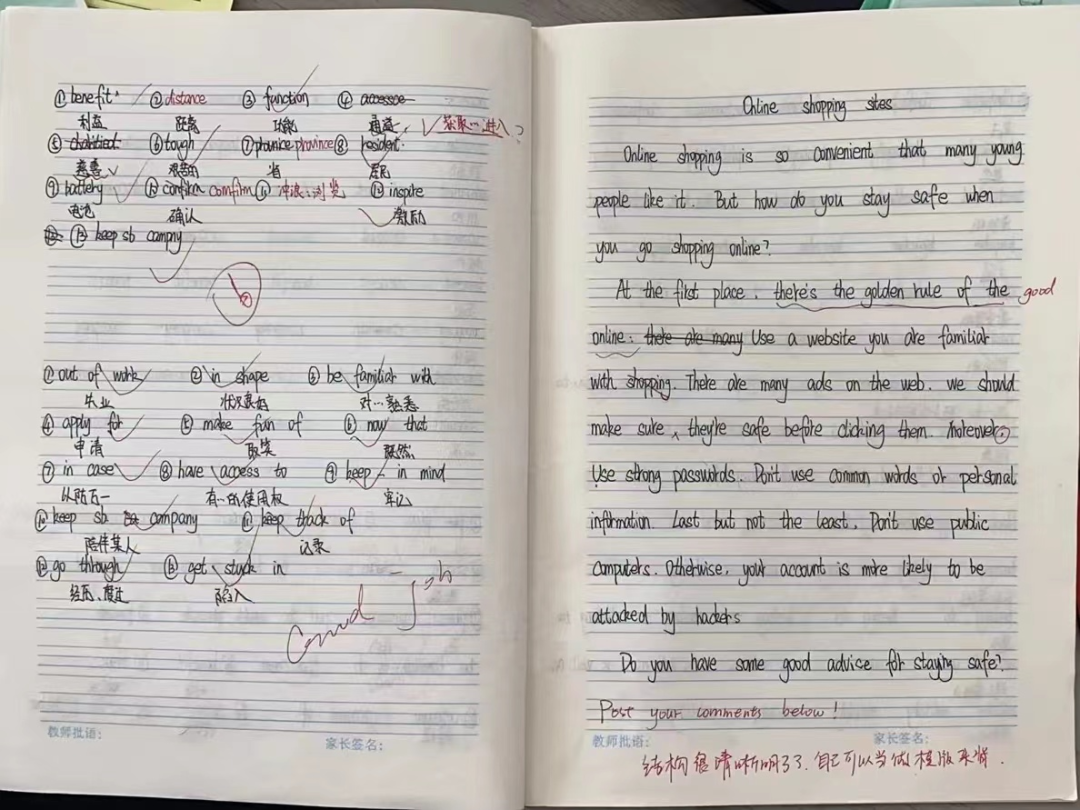 ① benefit ② distance ③ function ④
利益 距离 功能 通道 获取…进入
⑤ ⑥ tough ⑦ province province ⑧ resident
慈善 艰苦的 省 居民
⑨ battery ⑩ confirm comfirm ⑪ 冲浪;浏览 ⑫ inspire
电池 确认 激励
⑬ keep sb campny
① out of work ② in shape ③ be familiar with
失业 状况良好 对…熟悉
④ apply for ⑤ make fun of ⑥ now that
申请 取笑 既然
⑦ in case ⑧ have access to ⑨ keep in mind
以防万一 有…的使用权 牢记
⑩ keep sb company ⑪ keep track of
陪伴某人 记录
⑫ go through ⑬ get stuck in
经历、度过 陷入
Good Job
教师批语: 家长签名:
Online shopping sites
Online shopping is so convenient that many young
people like it. But how do you stay safe when
you go shopping online?
At the first place, there's the golden rule of the good
online: there are many Use a website you are familiar
with shopping. There are many ads on the web. we should
make sure they're safe before clicking them. Moreover,
Use strong passwords. Don't use common words or personal
information. Last but not the least. Don't use public
computers. Otherwise, your account is more likely to be
attacked by hackers
Do you have some good advice for staying safe?
Post your comments below!
教师批语: 家长签名:
结构很清晰明了了.自己可以当做模版来背.